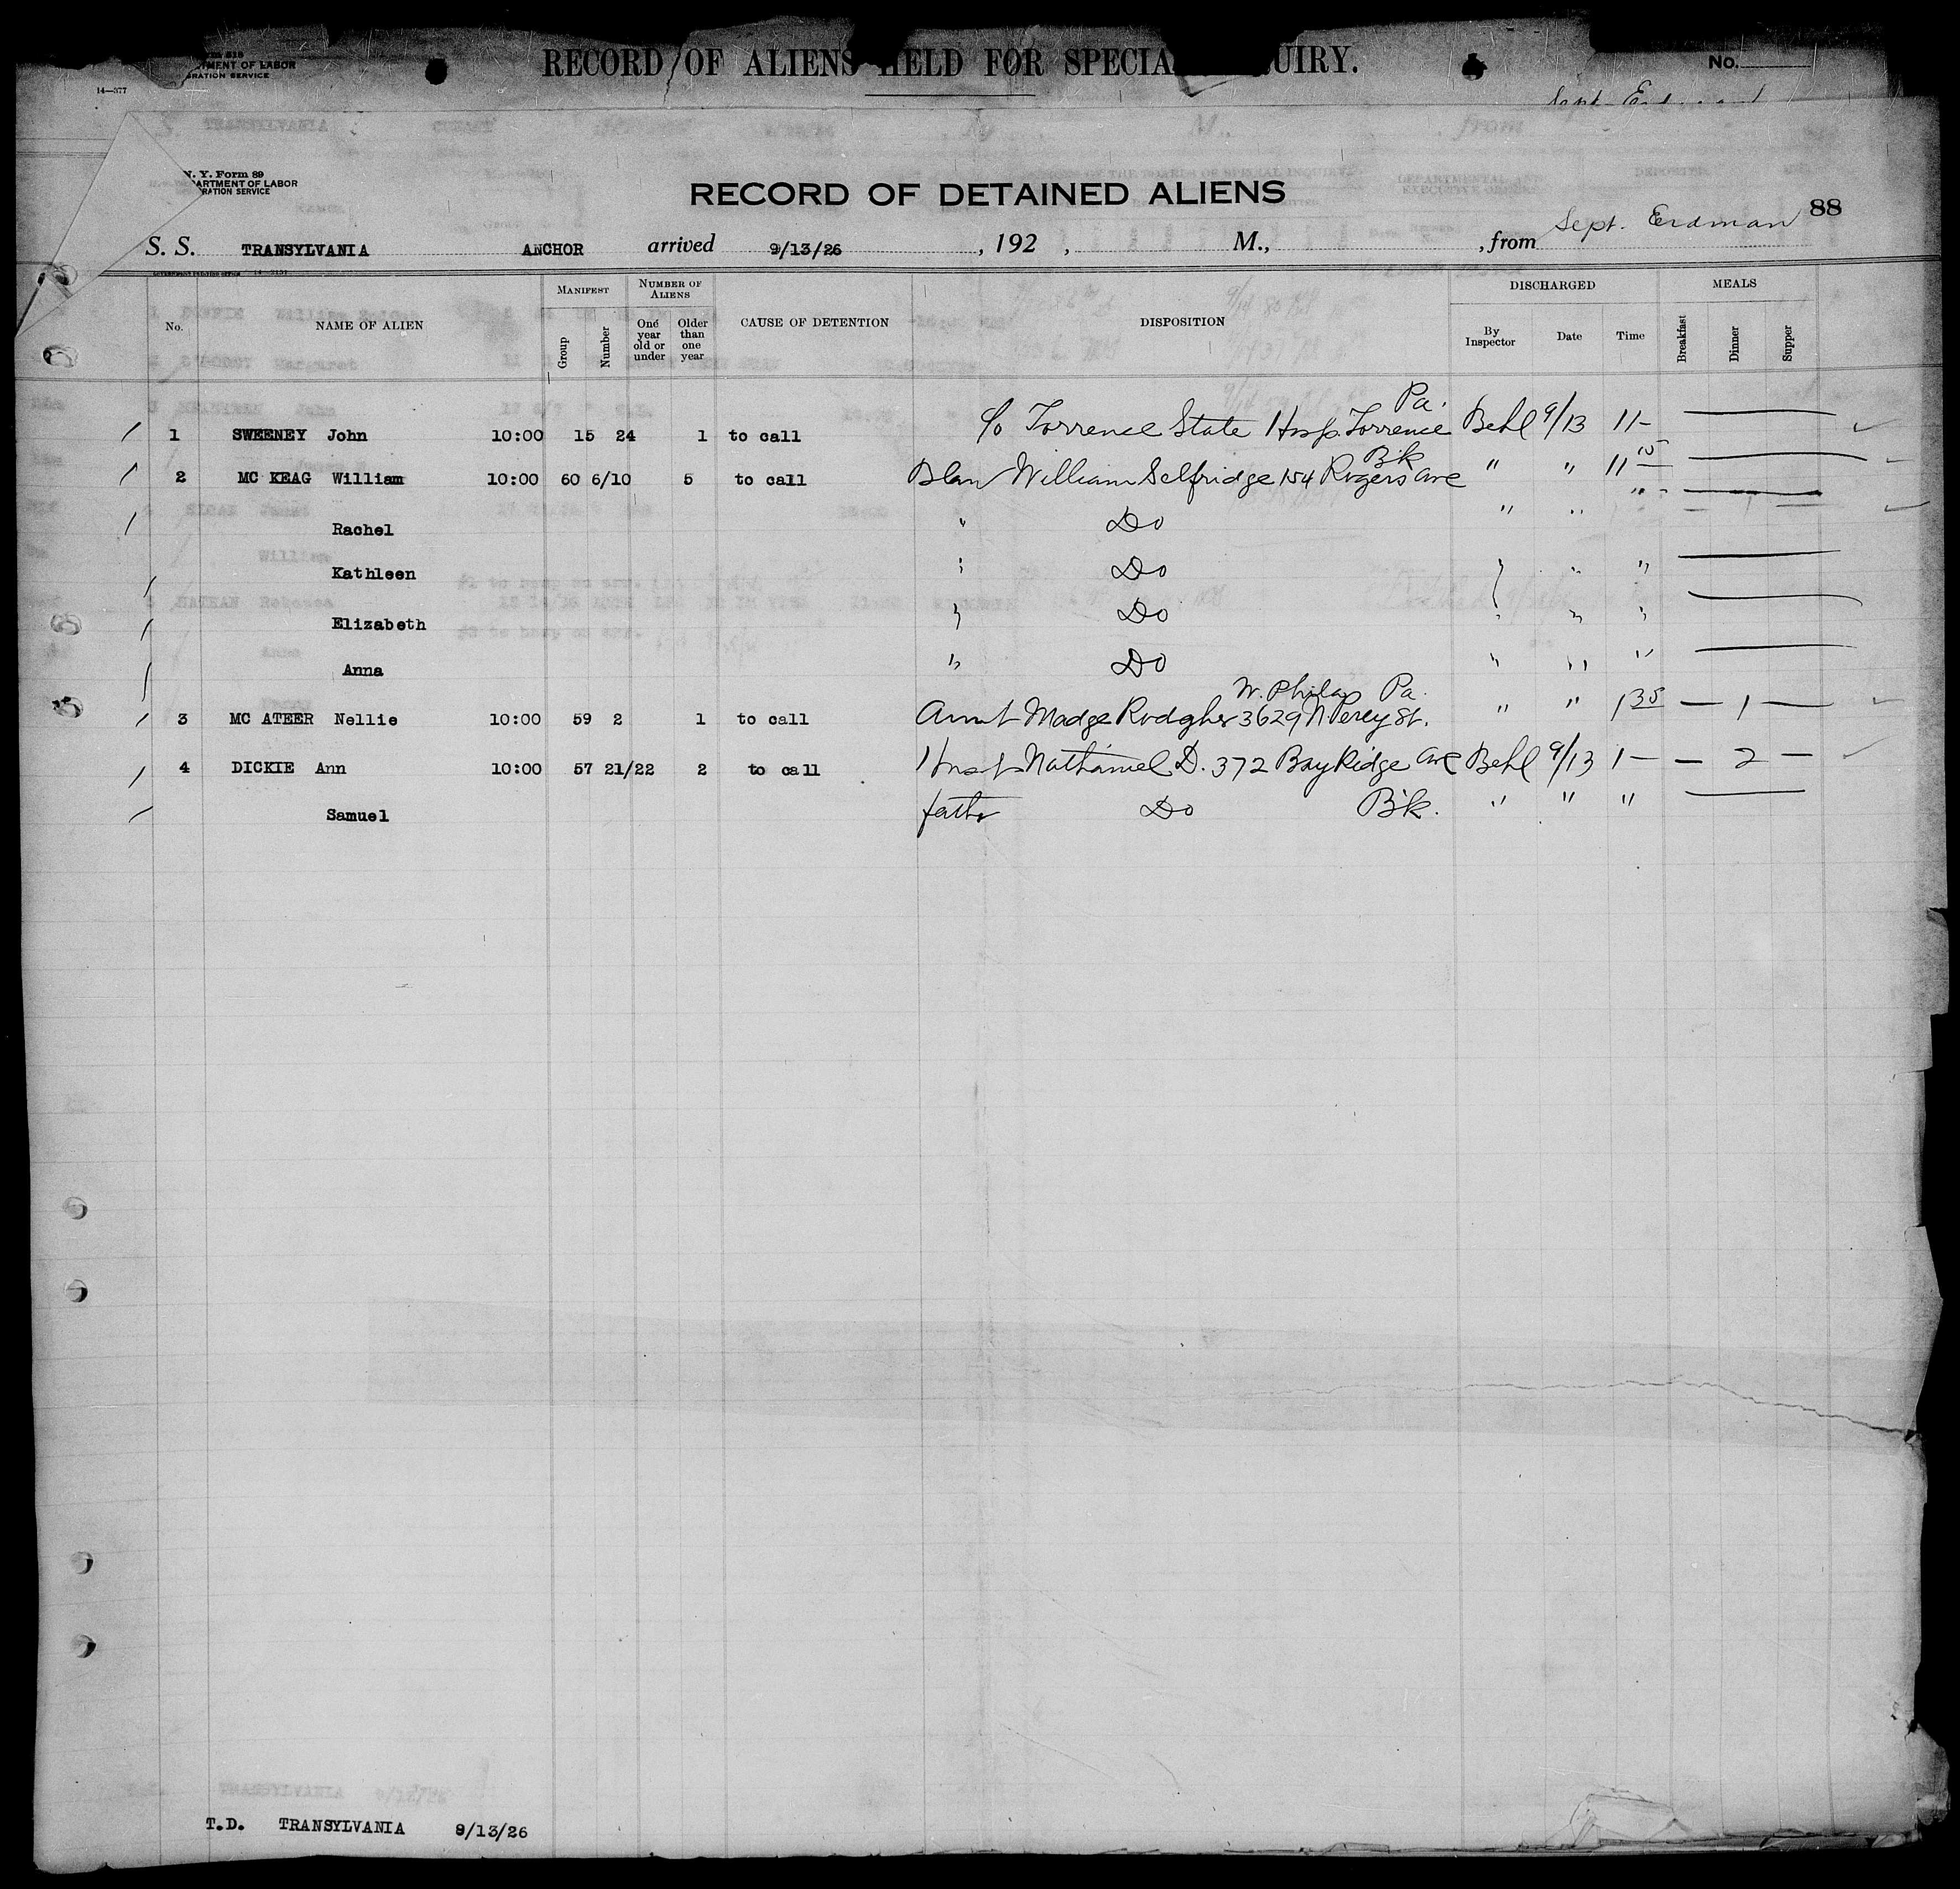 RECORD OF ALIENS HELD FOR SPECIA UIRY.
No.
14—377
N. Y. Form 89
ARTMENT OF LABOR
RATION SERVICE
RECORD OF DETAINED ALIENS
88
Sept. Erdman
S. S. TRANSYLVANIA ANCHOR arrived 9/13/26 , 192 , M., , from
No. NAME OF ALIEN MANIFEST Group Number NUMBER OF ALIENS One year old or under Older than one year CAUSE OF DETENTION DISPOSITION DISCHARGED By Inspector Date Time MEALS Breakfast Dinner Supper
1 SWEENEY John 10:00 15 24 1 to call c/o Torrence State Hosp. Torrence Pa. Behl 9/13 11—
2 MC KEAG William 10:00 60 6/10 5 to call Blaw William Selfridge 154 Rogers Ave Bk " " 11 15
Rachel " Do " " "
Kathleen " Do " " "
Elizabeth " Do " " "
Anna " Do " " "
3 MC ATEER Nellie 10:00 59 2 1 to call Aunt Madge Rodghers 3629 N Percy St. W. Phila Pa. " " 1 35 — 1 —
4 DICKIE Ann 10:00 57 21/22 2 to call Husb Nathaniel D. 372 Bay Ridge Ave Behl 9/13 1— — 2 —
Samuel father Do B'k. " " "
T.D. TRANSYLVANIA 9/13/26